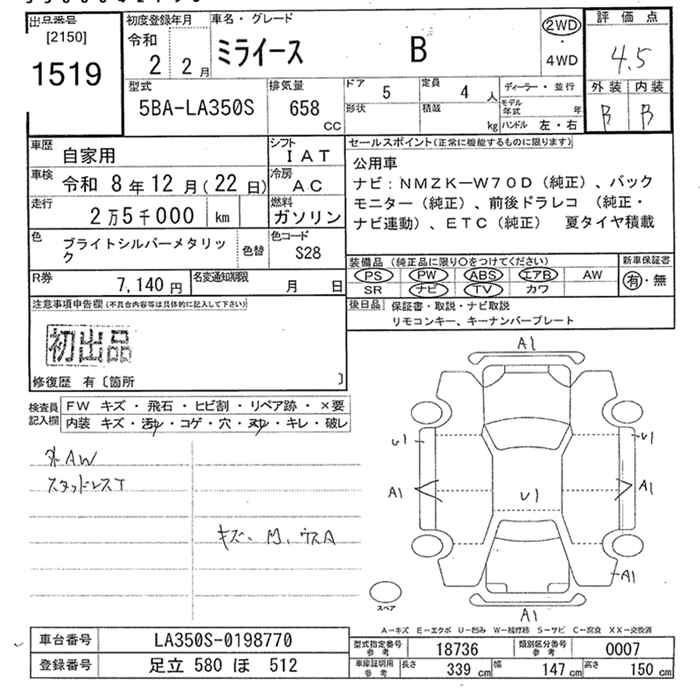 出品番号
[2150]
1519
初度登録年月
令和
2 2月
車名・グレード
ミライース B
2WD
・
4WD
評価点
4.5
外装 内装
B B
型式
5BA-LA350S
排気量
658 CC
ドア 5
定員 4 人
形状
積載 kg
ディーラー・並行
モデル年式 年
ハンドル 左・右
車歴 自家用
シフト IAT
車検 令和 8年12月(22日)
冷房 AC
走行 2万5千000 km
燃料 ガソリン
色 ブライトシルバーメタリック
色替
色コード S28
R券 7,140円
名変通知期限 月 日
セールスポイント(正常に機能するものに限ります)
公用車
ナビ:NMZK-W70D(純正)、バック
モニター(純正)、前後ドラレコ (純正・
ナビ連動)、ETC(純正) 夏タイヤ積載
装備品(純正品に限り○をつけてください)
新車保証書
PS PW ABS エアB AW
SR ナビ TV カワ
有・無
後日品 保証書・取説・ナビ取説
リモコンキー、キーナンバープレート
注意事項申告欄(不具合内容等は具体的に記入して下さい)
初出品
修復歴 有〔箇所 〕
検査員記入欄
FW キズ・飛石・ヒビ割・リペア跡・×要
内装 キズ・汚れ・コゲ・穴・ヌケ・キレ・破レ
外AW
スタッドレスT
キズ、凹、ウスA
A1
U1 U1
A1 A1
U1
A1
スペア
A1
A-キズ E-エクボ U-凹み W-補修跡 S-サビ C-腐食 XX-交換済
車台番号 LA350S-0198770
登録番号 足立 580 ほ 512
型式指定番号 参考 18736
類別区分番号 参考 0007
車庫証明用 参考 長さ 339 cm 幅 147 cm 高さ 150 cm